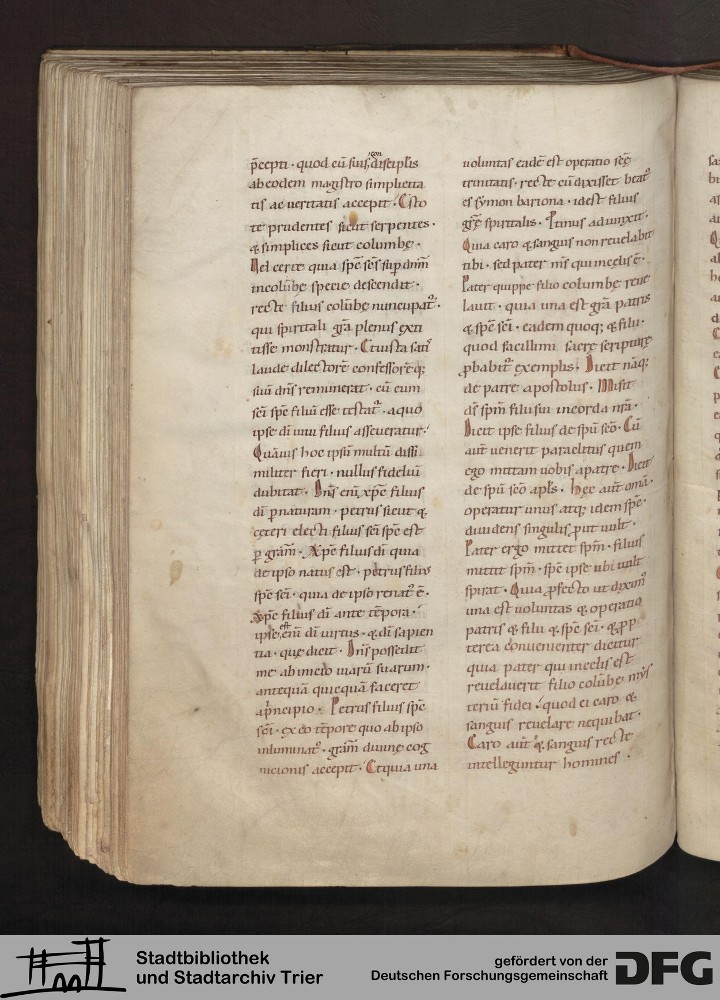 p̄cepti · quod cū suis con discipl̄is
ab eodem magistro simplicita
tis ac ueritatis accepit · Esto
te prudentes sicut serpentes ·
& simplices sicut columbę ·
Uel certe quia sp̄c sc̄s sup dn̄m
in colūbę specie descendit ·
recte filius colūbę nuncupat᷑ ·
qui spiritali gr̄a plenus exti
tisse monstratur · Et iusta sati
laude dilectorē confessorēq;
suū dn̄s remunerat · cū eum
sc̄i sp̄c filiū esse testat᷑ · a quo
ipse dī uiui filius asseueratur ·
Quāuis hoc ipsū multū dissi
militer fieri · nullus fideliū
dubitat · Dn̄s enī xp̄c filius
dī p naturam · petrus sicut &
ceteri electi filius sc̄i sp̄c est
p grām · Xp̄c filius dī quia
de ipso natus est · petrus filius
sp̄c sc̄i · quia de ipso renat᷑ ē ·
Xp̄c filius dī ante tēpora ·
ipse est enī dī uirtus · & dī sapien
tia · quę dicit · Dn̄s possedit
me ab inicio uiarū suarum ·
antequā quicquā faceret
a p̄ncipio · Petrus filius sp̄c
sc̄i · ex eo tēpore quo ab ipso
inluminat᷑ · grām diuinę cog
nicionis accepit · Et quia una
uoluntas eadē est operatio scę
trinitatis · recte cū dixisset beat᷑
es symon bariona · id est filius
grę spiritalis · Ptinus adiunxit ·
Quia caro & sanguis non reuelabit
tibi · sed pater ms̄ qui in cęlis ē ·
Pater quippe filio columbę reue
lauit · quia una est grā patris
& sp̄c sc̄i · eadem quoq; & filii ·
quod facillimi sacrę scripturę
pbabit᷑ exemplis · Dicit nāq;
de patre apostolus · Misit
ds̄ sp̄m filii sui in corda nrā ·
Dicit ipse filius de sp̄u sc̄o · Cū
aut̄ uenerit paraclitus quem
ego mittam uobis a patre · Dicit
de sp̄u sc̄o apl̄s · hęc aut̄ omā
operatur unus atq; idem sp̄c ·
diuidens singulis put uult ·
Pater ergo mittet sp̄m · filius
mittit sp̄m · sp̄c ipse ubi uult
spirat · Quia pfecto ut diximᷤ
una est uoluntas & operatio
patris & filii & sp̄c sc̄i · & pp
terea conuenienter dicitur
quia pater qui in cęlis est
reuelauerit filio colūbę mys
teriū fidei · quod ei caro &
sanguis reuelare nequibat ·
Caro aut̄ & sanguis recte
intelleguntur homines ·
Stadtbibliothek
und Stadtarchiv Trier
gefördert von der
Deutschen Forschungsgemeinschaft
DFG